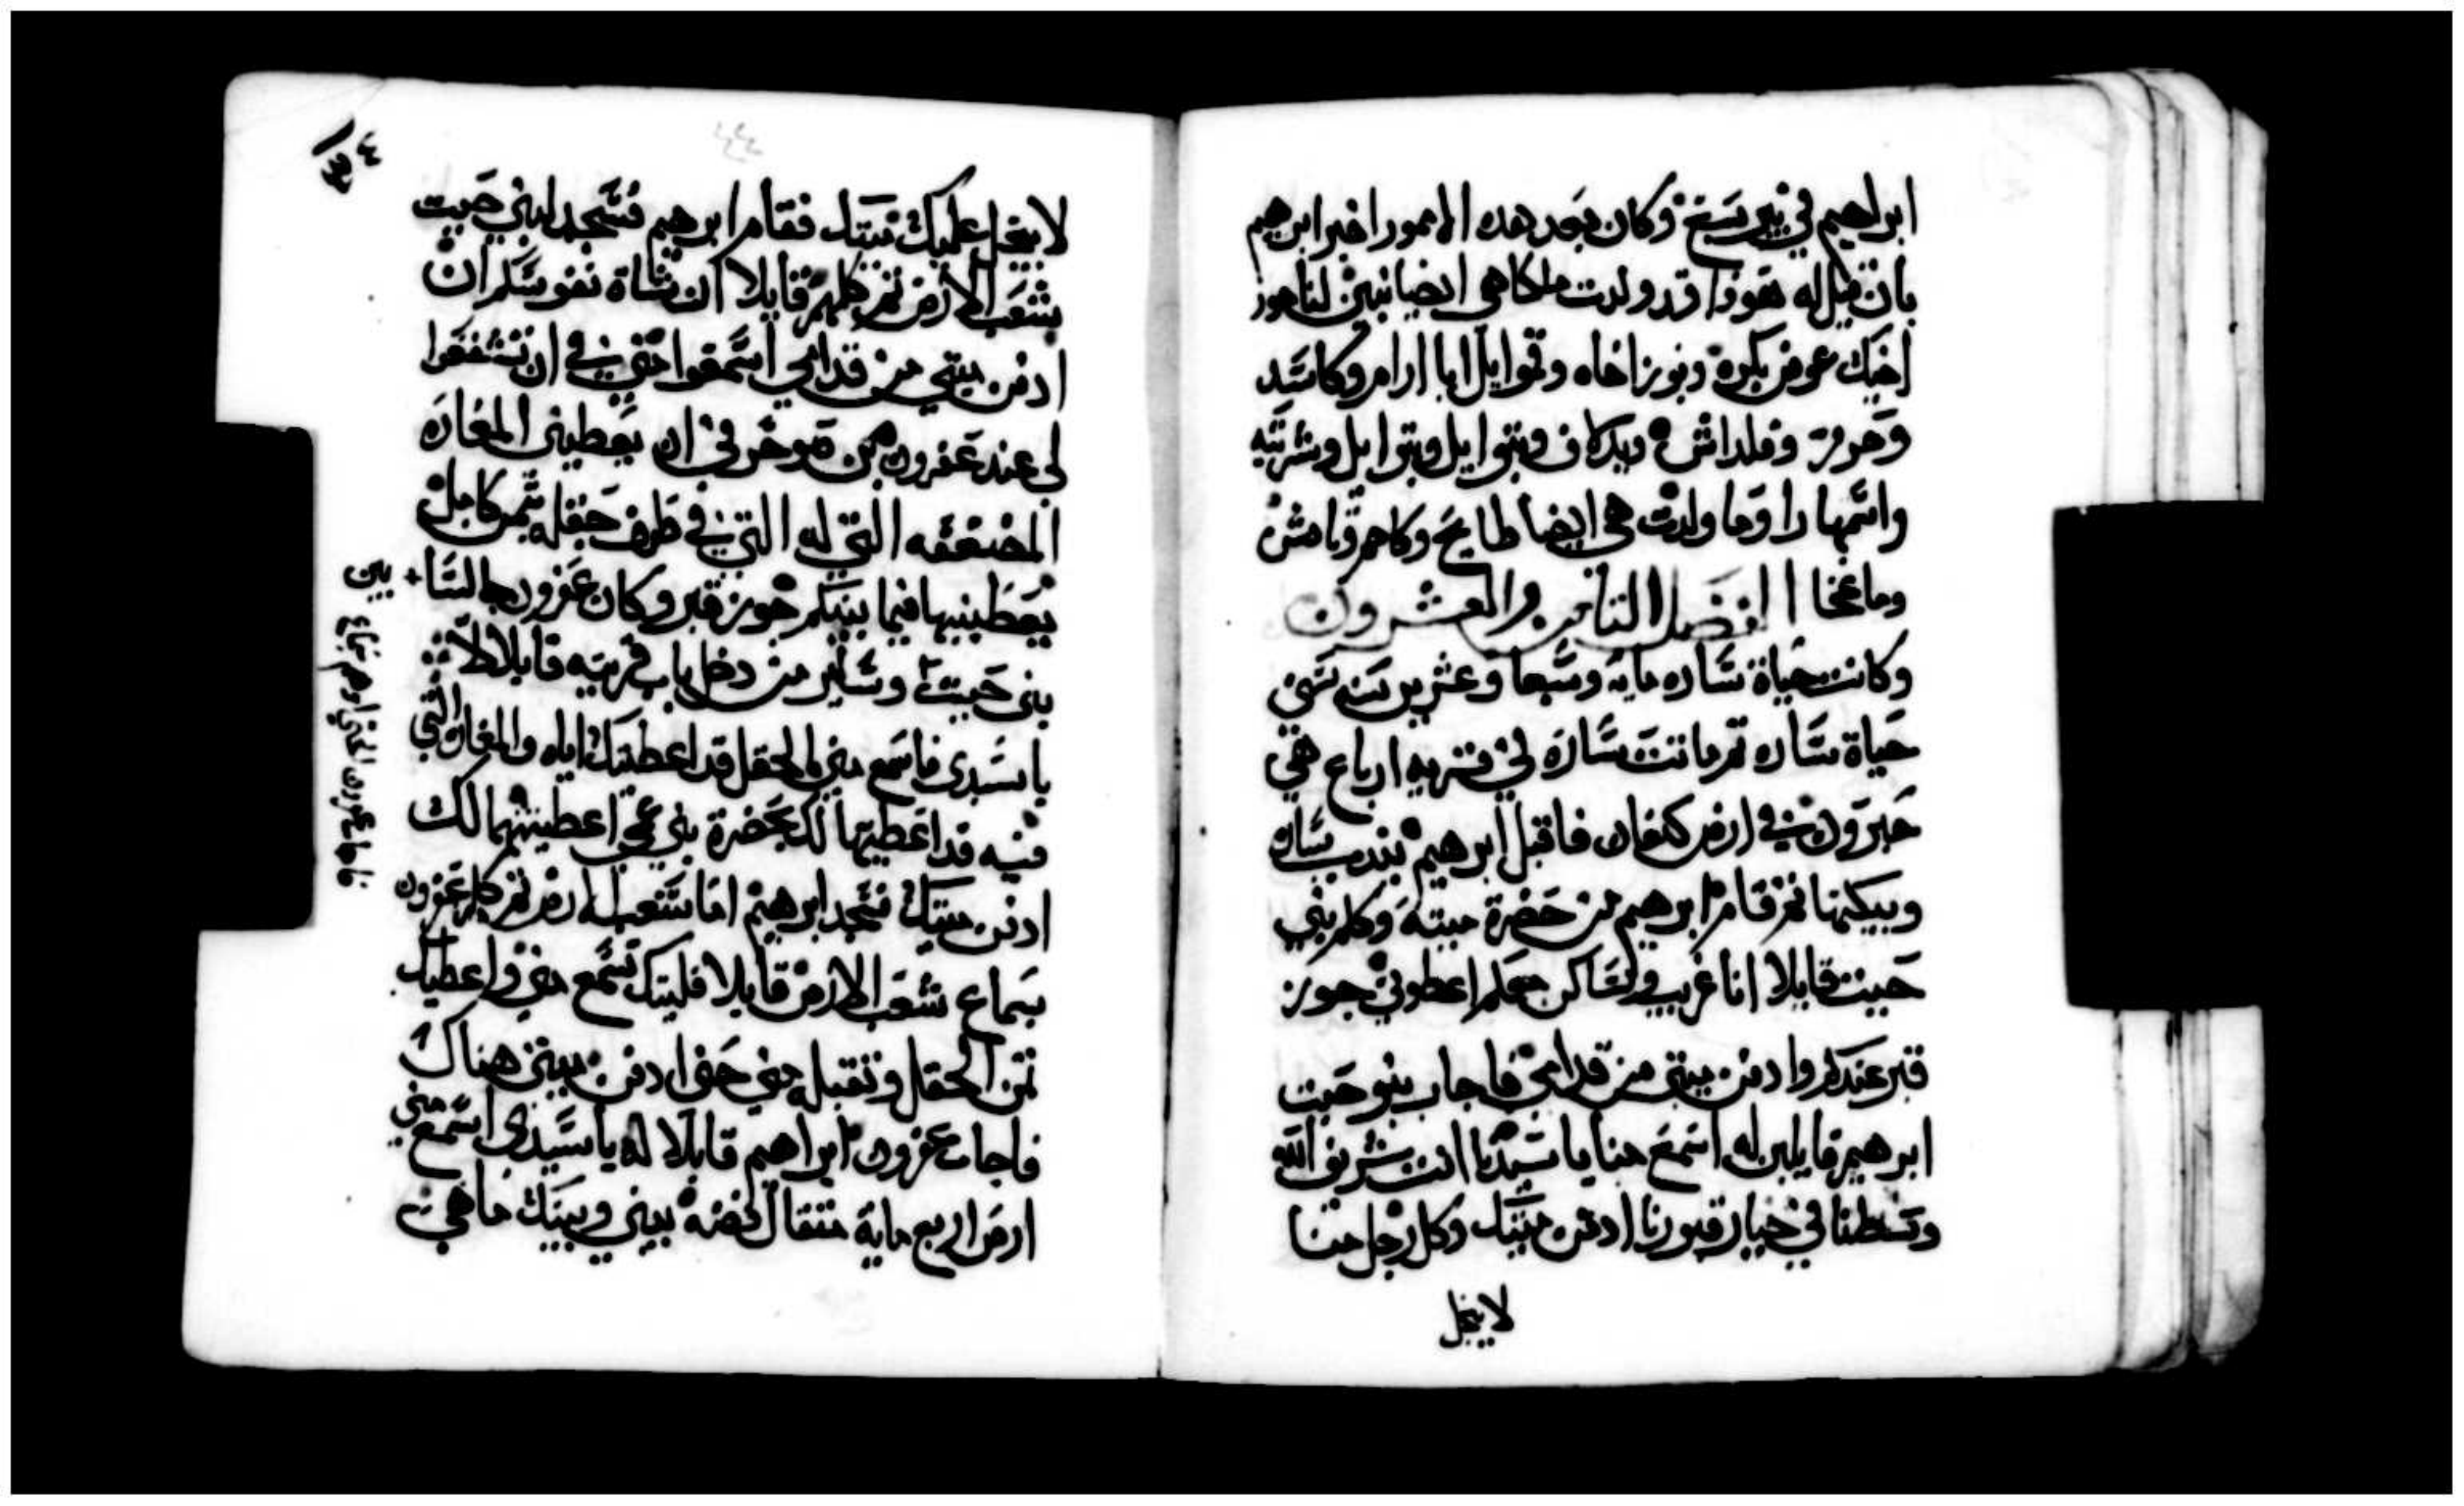 ابراهيم في بير سبع وكان بعد هده الامور اخبر ابرهيم
بان قيل له هودا قد ولدت ملكا هي ايضا نبين لناحور
اخيك عوض بكره وبوز اخاه وقموايل ابا ارام وكاسد
وحزو وفلداش ويدلاف وبتوايل وبتوايل وسريته
واسمها راوما ولدت هي ايضا طابح وكاحم وتاحش
وماعخا الفصل التاني والعشرون
وكانت حياة ساره مايه وسبعا وعشرين سنه سني
حياة ساره تم ماتت ساره في قريه ارباع هي
حبرون في ارض كنعان فاقبل ابرهيم يندب ساره
ويبكيها تم قام ابرهيم من حضرة ميته وكلم بني
حيت قايلا انا غريب وساكن معكم اعطوني حوز
قبر عندكم وادفن ميتي من قدامي فاجاب بنو حيت
ابرهيم قايلين له اسمع منا يا سيدنا انت شريف الله
وسطنا في خيار قبورنا ادفن ميتك وكل رجل منا
لا يبخل
لا يبخل عليك بقبره فقام ابرهيم فسجد لبني حيت
بشعب الارض تم كلمهم قايلا ان شاة نفوسكم ان
ادفن ميتي من قدامي اسمعوا مني في ان تشفعوا
لي عند عفرون بن صوحر في ان يعطيني المغاره
المضعفه التي له التي في طرف حقله بتمن كامل
يعطينيها فيما بينكم حوز قبر وكان عفرون جالسا
بين
بني حيت وساير من دخل باب قريته قايلا لا
يا سيدي فاسمع مني الحقل قد اعطيتك اياه والمغاره التي
فيه قد اعطيتها لك بحضرة بني عمي اعطيتهما لك
ادفن ميتك فسجد ابرهيم امام شعب الارض تم كلم عفرون
بسماع شعب الارض قايلا فليتك تسمع مني واعطيك
تمن الحقل وتقبله مني حتى ادفن ميتي هناك
فاجاب عفرون ابراهيم قايلا له يا سيدي اسمع مني
ارض اربع ماية متقال فضه بيني وبينك ما هي